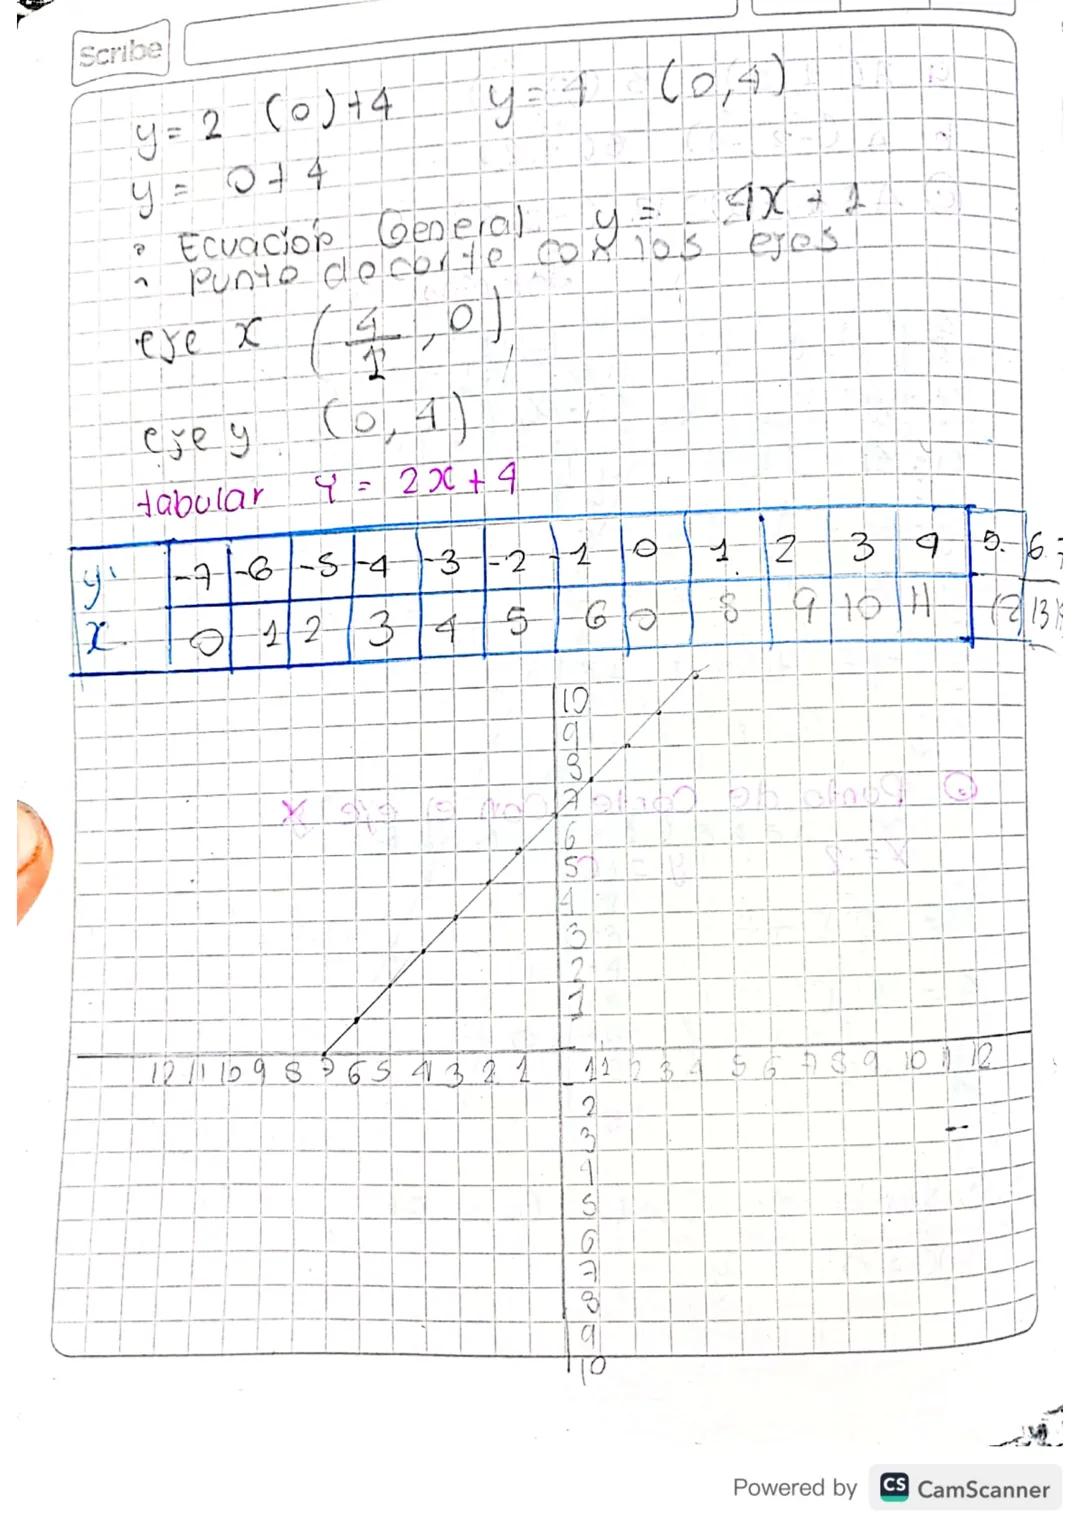 Scribe
y = 2 (0)+4 y = 4 (0,4)
y = 0+4
° Ecuación General y = 4x + 1
^ punto de corte con los ejes
eje x (4/1, 0)
eje y (0, 4)
tabular Y = 2x + 4
y -7 -6 -5 -4 -3 -2 -1 0 1 2 3 4 5 6
x 0 1 2 3 4 5 6 0 8 9 10 11 12 13
10
9
8
7
6
5
4
3
2
1
12 11 10 9 8 7 6 5 4 3 2 1 1 2 3 4 5 6 7 8 9 10 11 12
1
2
3
4
5
6
7
8
9
10
Powered by CS CamScanner